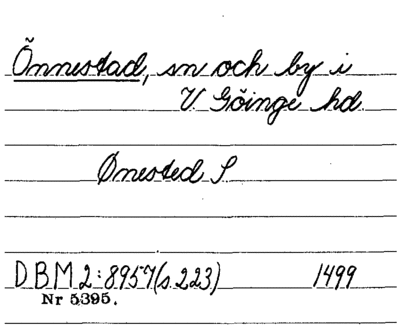 Önnestad, sn och by i
V Göinge hd.
Ønested S
DBM 2:8957(s.223) 1499
Nr 5395.